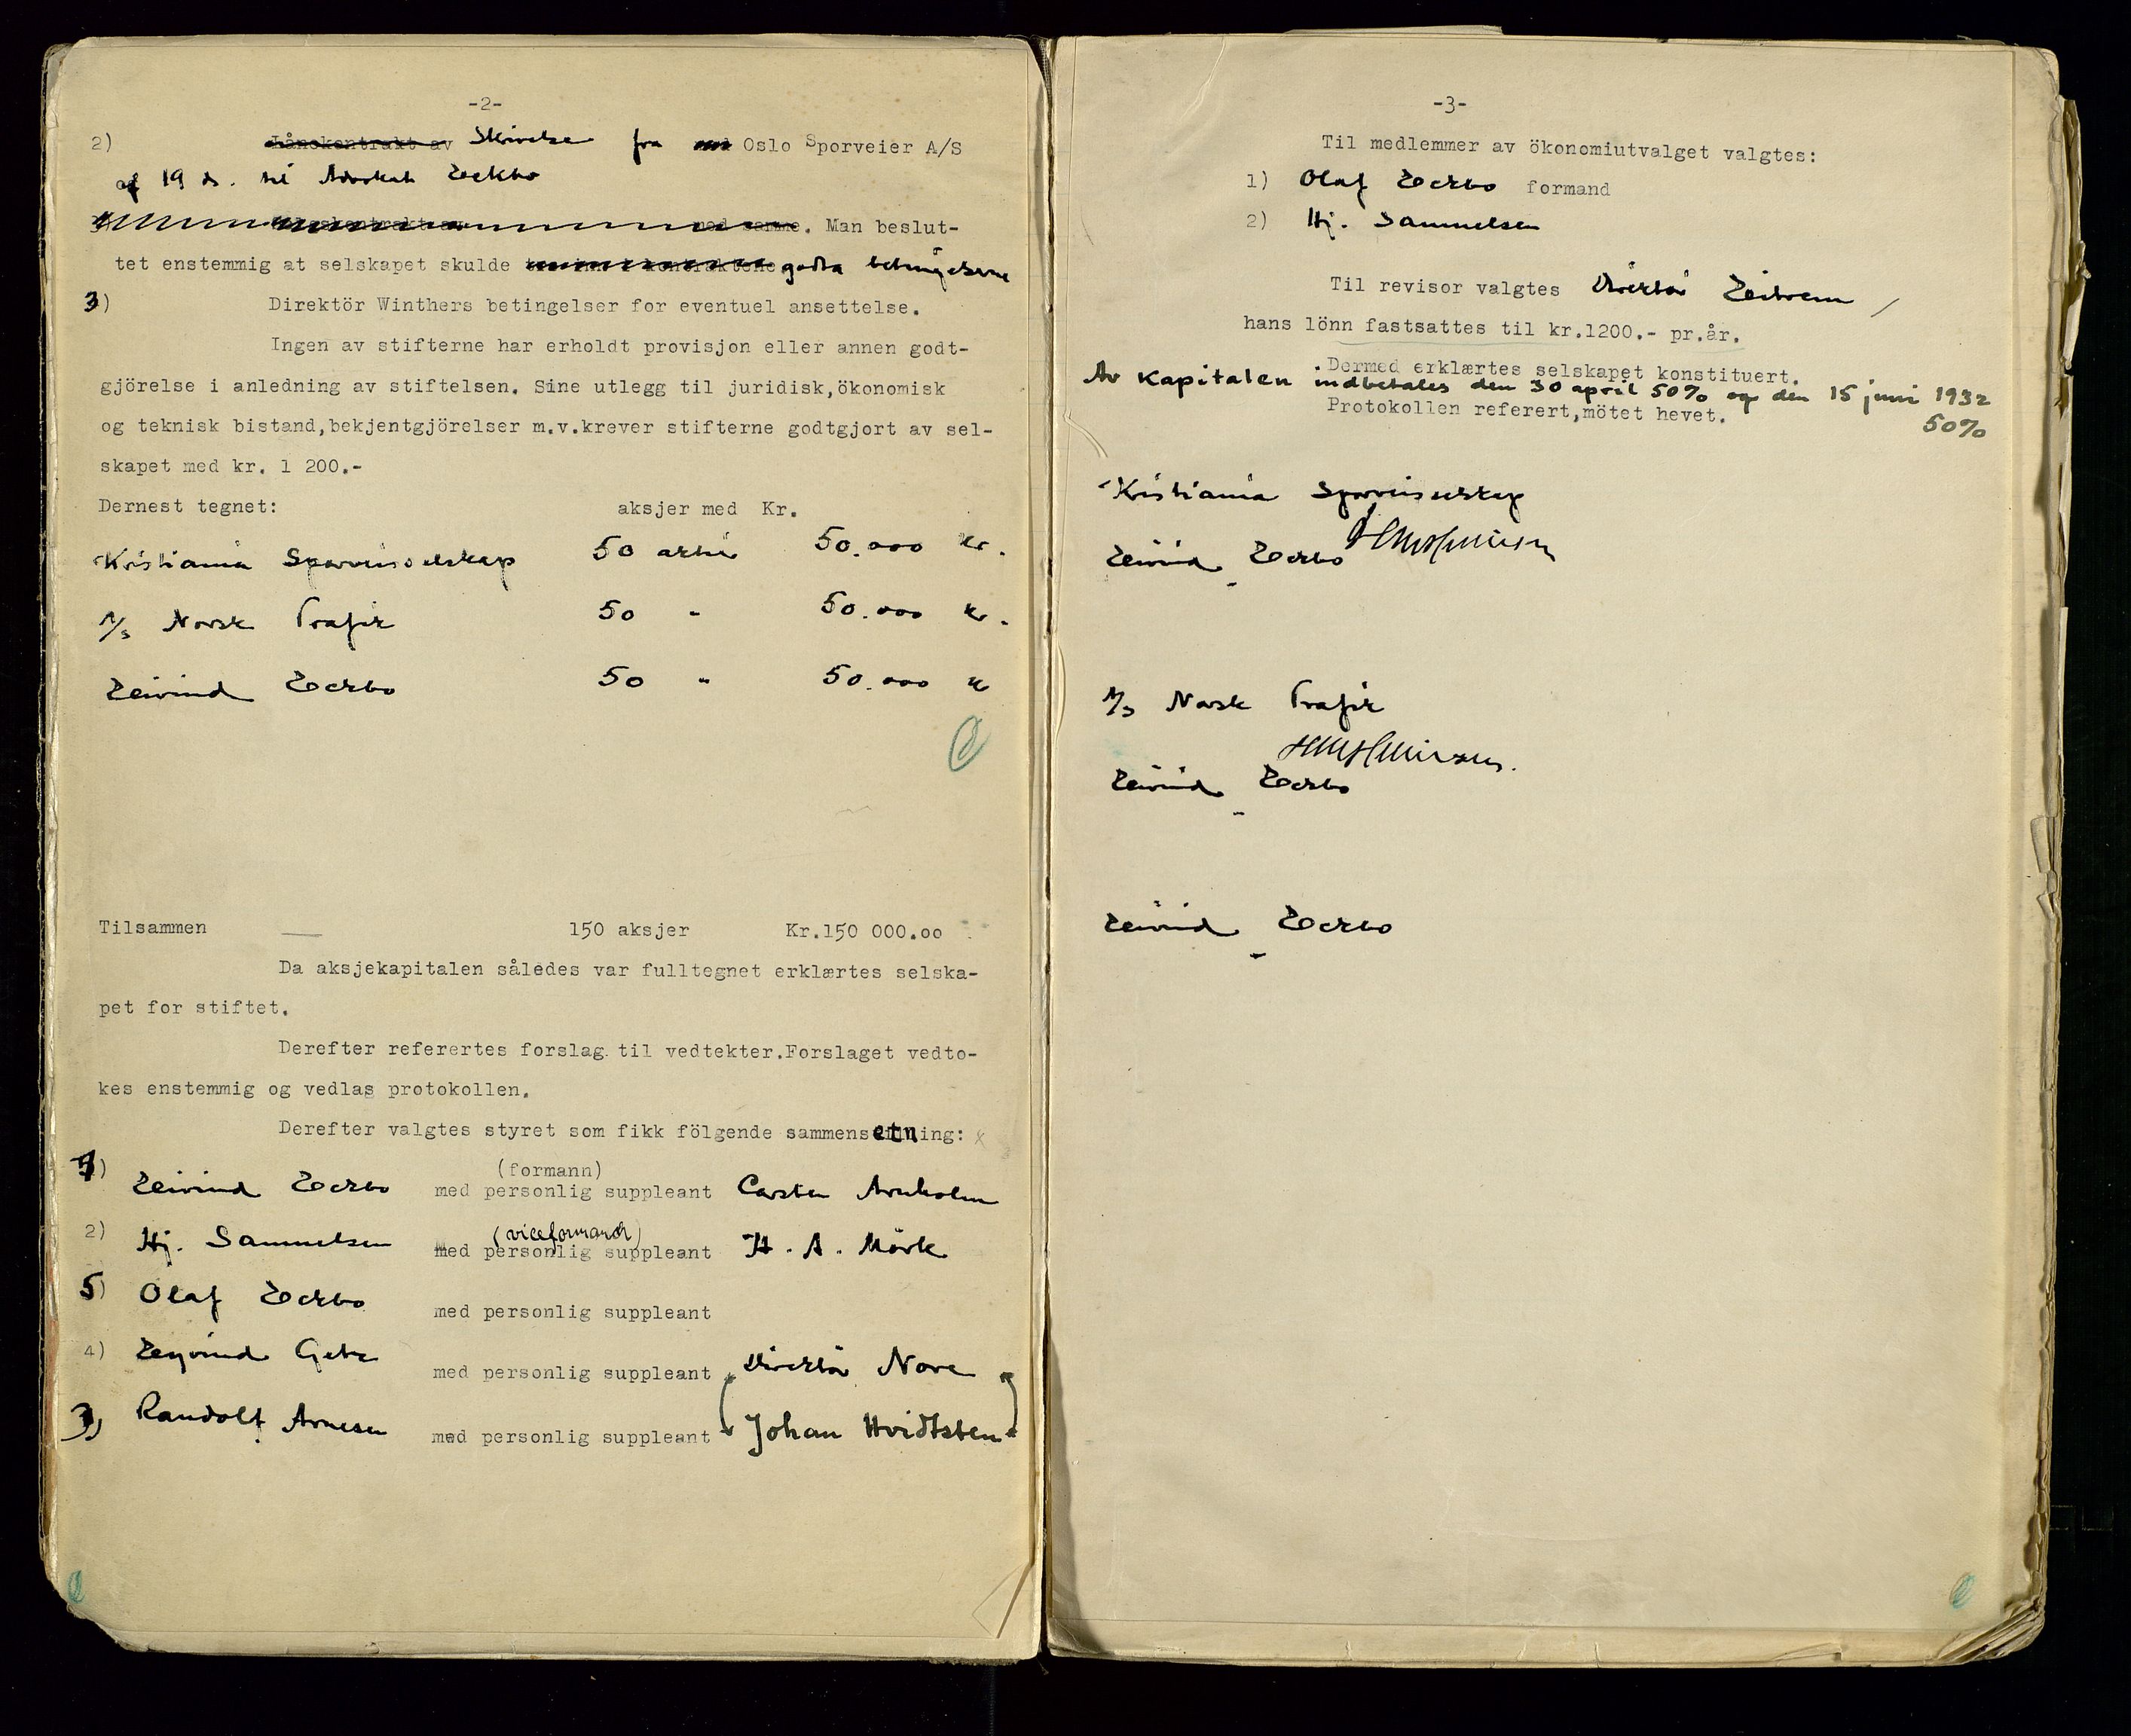 -2-
2) Lånekontrakt av Skrivelse fra med Oslo Sporveier A/S
af 19 ds. til Advokat Eckbo
med samme. Man beslut-
tet enstemmig at selskapet skulde godta betingelsene
3) Direktör Winthers betingelser for eventuel ansettelse.
Ingen av stifterne har erholdt provisjon eller annen godt-
gjörelse i anledning av stiftelsen. Sine utlegg til juridisk,ökonomisk
og teknisk bistand,bekjentgjörelser m.v.krever stifterne godtgjort av sel-
skapet med kr. 1 200.-
Dernest tegnet: aksjer med Kr.
Kristiania Sporveisselskap 50 aktier 50.000 kr.
A/S Norsk Trafik 50 " 50.000 kr.
Eivind Eckbo 50 " 50.000 kr
Tilsammen 150 aksjer Kr.150 000.00
Da aksjekapitalen således var fulltegnet erklærtes selska-
pet for stiftet.
Derefter referertes forslag til vedtekter.Forslaget vedto-
kes enstemmig og vedlas protokollen.
Derefter valgtes styret som fikk fölgende sammensetning:
(formann)
1) Eivind Eckbo med personlig suppleant Carsten Arnholm
(viceformand)
2) Hj. Samuelsen med personlig suppleant H. A. Mörk
5) Olaf Eckbo med personlig suppleant
4) Eyvind Getz med personlig suppleant Direktör Nore
3) Randolf Arnesen med personlig suppleant Johan Hvidtsten
-3-
Til medlemmer av ökonomiutvalget valgtes:
1) Olaf Eckbo formand
2) Hj. Samuelsen
Til revisor valgtes Direktör Eitrem
hans lönn fastsattes til kr.1200.- pr.år.
Dermed erklærtes selskapet konstituert.
Av kapitalen indbetales den 30 april 50% og den 15 juni 1932
50%
Protokollen referert,mötet hevet.
Kristiania Sporveisselskap
Eivind Eckbo
A/S Norsk Trafik
Eivind Eckbo
Eivind Eckbo